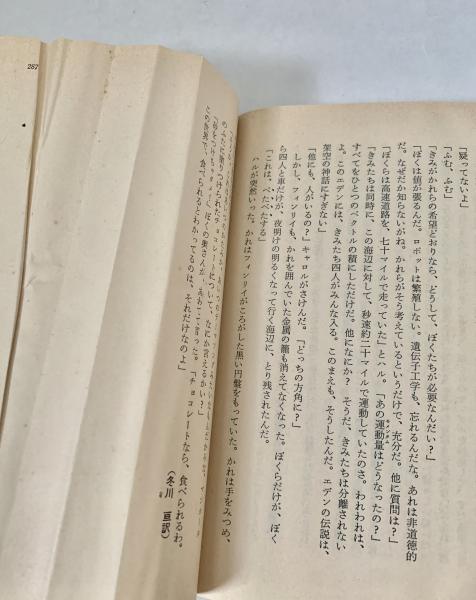 「疑ってないよ」
「ふむ、ふむ」
「きみがかれらの希望どおりなら、どうして、ぼくたちが必要なんだい？」
「ぼくは値が張るんだ。ロボットは繁殖しない。遺伝子工学も、忘れるんだな。あれは非道徳的
だ。なぜだか知らないがね。かれらがそう考えているというだけで、充分だ。他に質問は？」
「ぼくらは高速道路を、七十マイルで走っていた」とハル。「あの運動量はどうなったの？」
「きみたちは同時に、この海辺に対して、秒速約二十マイルで運動していたのさ。われわれは、
すべてをひとつのベクトルの積にしただけだ。他になにか？　そうだ、きみたちは分離されない
よ。このエデンには、きみたち四人がみんな入る。このまえも、そうしたんだ。エデンの伝説は、
架空の神話にすぎない」
「他にも、人がいるの？」キャロルがさけんだ。「どっちの方角に？」
しかし、フィンリイも、かれを囲んでいた金属の籠も消えてなくなった。ぼくらだけが、ぼく
ら四人と車だけが、夜明けの明るくなって行く海辺に、とり残されたんだ。
「これは、べたべたする」
ハルが突然いった。かれはフィンリイがころがした黒い円盤をもっていた。かれは手をみつめ、
のふたに塗りつけられたチョコレートについて、なにか言えるかい？」
ぼくの奥さんが
この世界で、食べられるとわかってるのは、それだけなのよ」
「チョコレートなら、食べられるわ。
（冬川　亘訳）
287